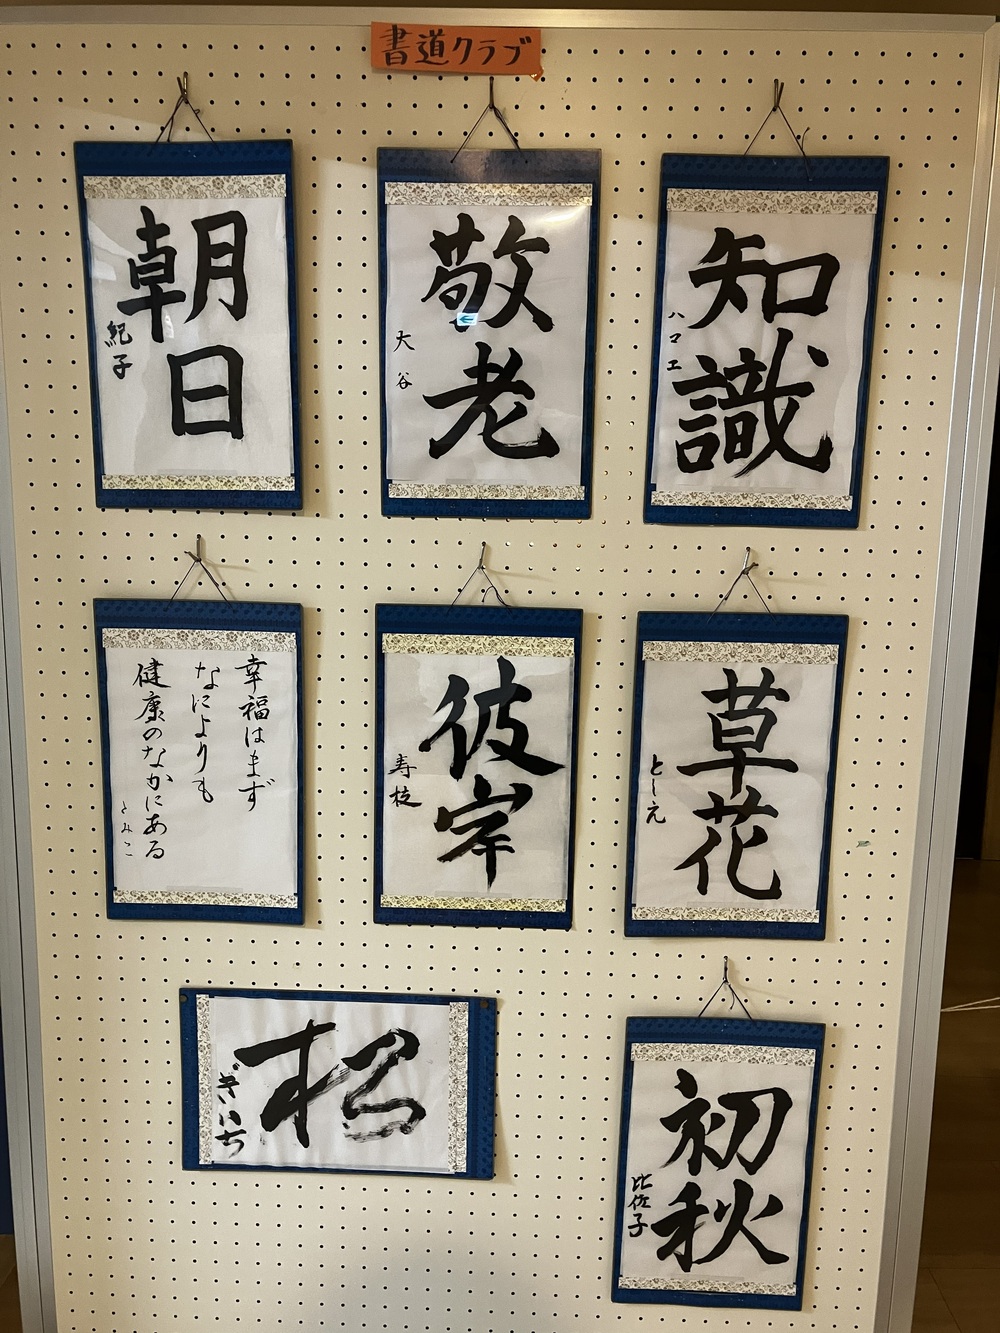 書道クラブ
朝日
紀子
敬老
大谷
知識
ハコエ
幸福はまず
なによりも
健康のなかにある
とみこ
彼岸
寿枝
草花
としえ
松
ぎいち
初秋
比佐子